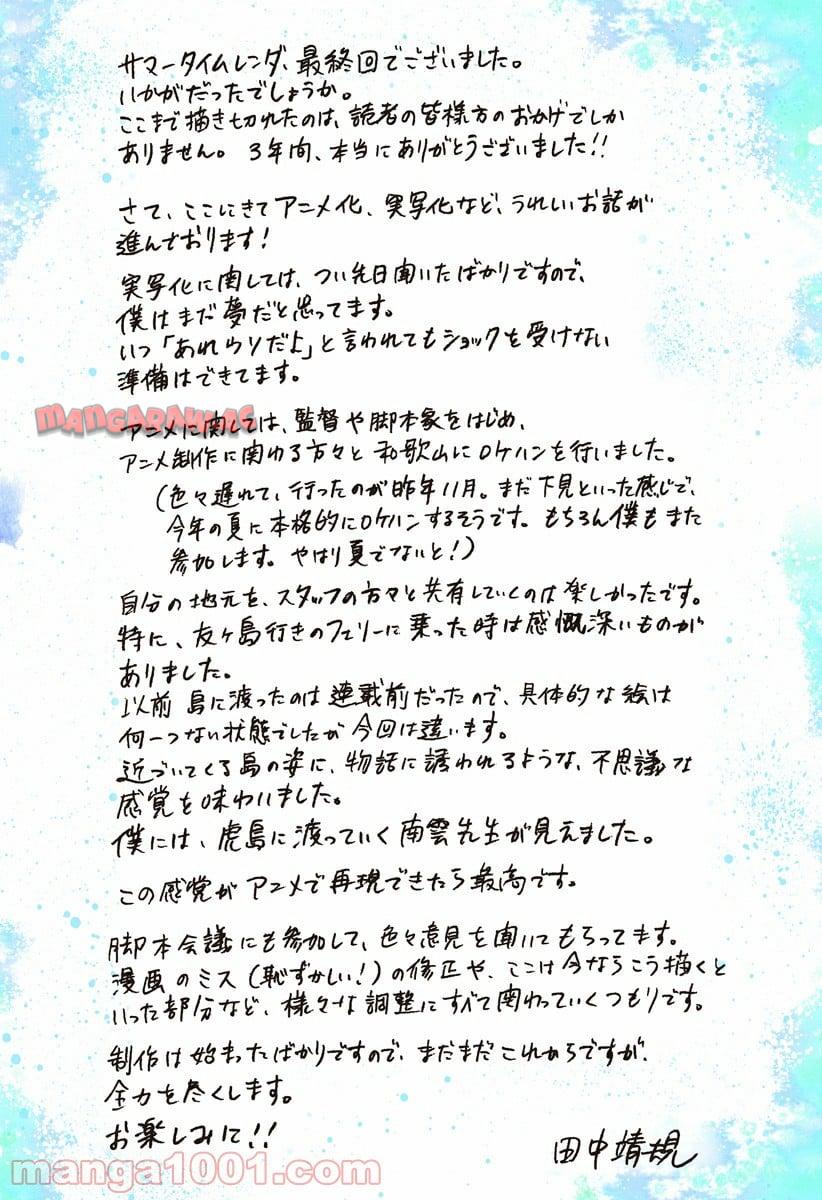 サマータイムレンダ、最終回でございました。
いかがだったでしょうか。
ここまで描き切れたのは、読者の皆様方のおかげでしか
ありません。3年間、本当にありがとうございました!!
さて、ここにきてアニメ化、実写化など、うれしいお話が
進んでおります!
実写化に関しては、つい先日聞いたばかりですので、
僕はまだ夢だと思ってます。
いつ「あれウソだよ」と言われてもショックを受けない
準備はできてます。
MANGARAWMAC
アニメに関しては、監督や脚本家をはじめ、
アニメ制作に関わる方々と和歌山にロケハンを行いました。
(色々遅れて、行ったのが昨年11月。まだ下見といった感じで、
今年の夏に本格的にロケハンするそうです。もちろん僕もまた
参加します。やはり夏でないと!)
自分の地元を、スタッフの方々と共有していくのは楽しかったです。
特に、友ヶ島行きのフェリーに乗った時は感慨深いものが
ありました。
以前島に渡ったのは連載前だったので、具体的な絵は
何一つない状態でしたが今回は違います。
近づいてくる島の姿に、物語に誘われるような、不思議な
感覚を味わいました。
僕には、虎島に渡っていく南雲先生が見えました。
この感覚がアニメで再現できたら最高です。
脚本会議にも参加して、色々意見を聞いてもらってます。
漫画のミス(恥ずかしい!)の修正や、ここは今ならこう描くと
いった部分など、様々な調整にすべて関わっていくつもりです。
制作は始まったばかりですので、まだまだこれからですが、
全力を尽くします。
お楽しみに!!
田中靖規
manga1001.com